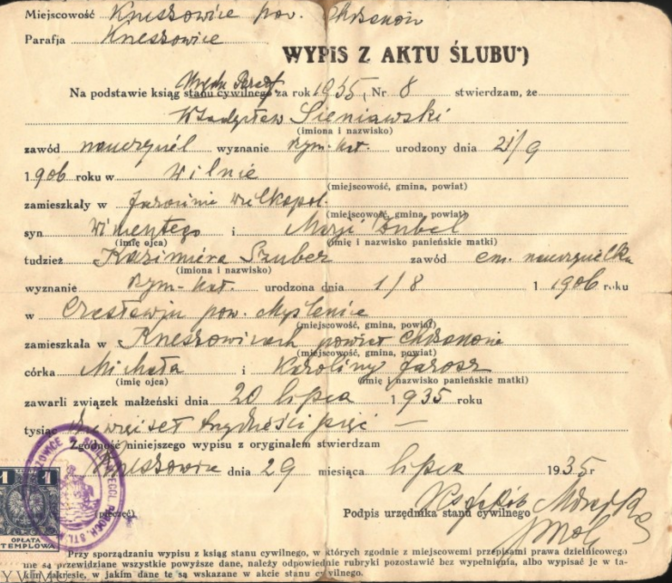 Miejscowość Krzeszowice pow. Chrzanów
Parafja Krzeszowice
WYPIS Z AKTU ŚLUBU*)
Na podstawie ksiąg stanu cywilnego za rok 1935, Nr 8 stwierdzam, że
Władysław Sieniawski
(imiona i nazwisko)
zawód nauczyciel wyznanie rzym-kat. urodzony dnia 21/9
1906 roku w Wilnie
(miejscowość, gmina, powiat)
zamieszkały w Jarocinie wielkopol.
(miejscowość, gmina, powiat)
syn Wincentego i Marji
(imię ojca) (imię i nazwisko panieńskie matki)
tudzież Kazimiera Szuber zawód em. nauczycielka
(imiona i nazwisko)
wyznanie rzym-kat. urodzona dnia 1/8 1906 roku
w pow. Myślenice
(miejscowość, gmina, powiat)
zamieszkała w Krzeszowicach powiat Chrzanów
(miejscowość, gmina, powiat)
córka Michała i Karoliny Jarosz
(imię ojca) (imię i nazwisko panieńskie matki)
zawarli związek małżeński dnia 20 lipca 1935 roku
tysiąc dziewięćset trzydzieści pięć —
Zgodność niniejszego wypisu z oryginałem stwierdzam
Krzeszowice dnia 29 miesiąca lipca 1935 r
Podpis urzędnika stanu cywilnego
1 1
OPŁATA
STEMPLOWA
Przy sporządzaniu wypisu z ksiąg stanu cywilnego, w których zgodnie z miejscowemi przepisami prawa dzielnicowego
nie są przewidziane wszystkie powyższe dane, należy odpowiednie rubryki pozostawić bez wypełnienia, albo wypisać je w ta-
kim zakresie, w jakim dane te są wskazane w akcie stanu cywilnego.